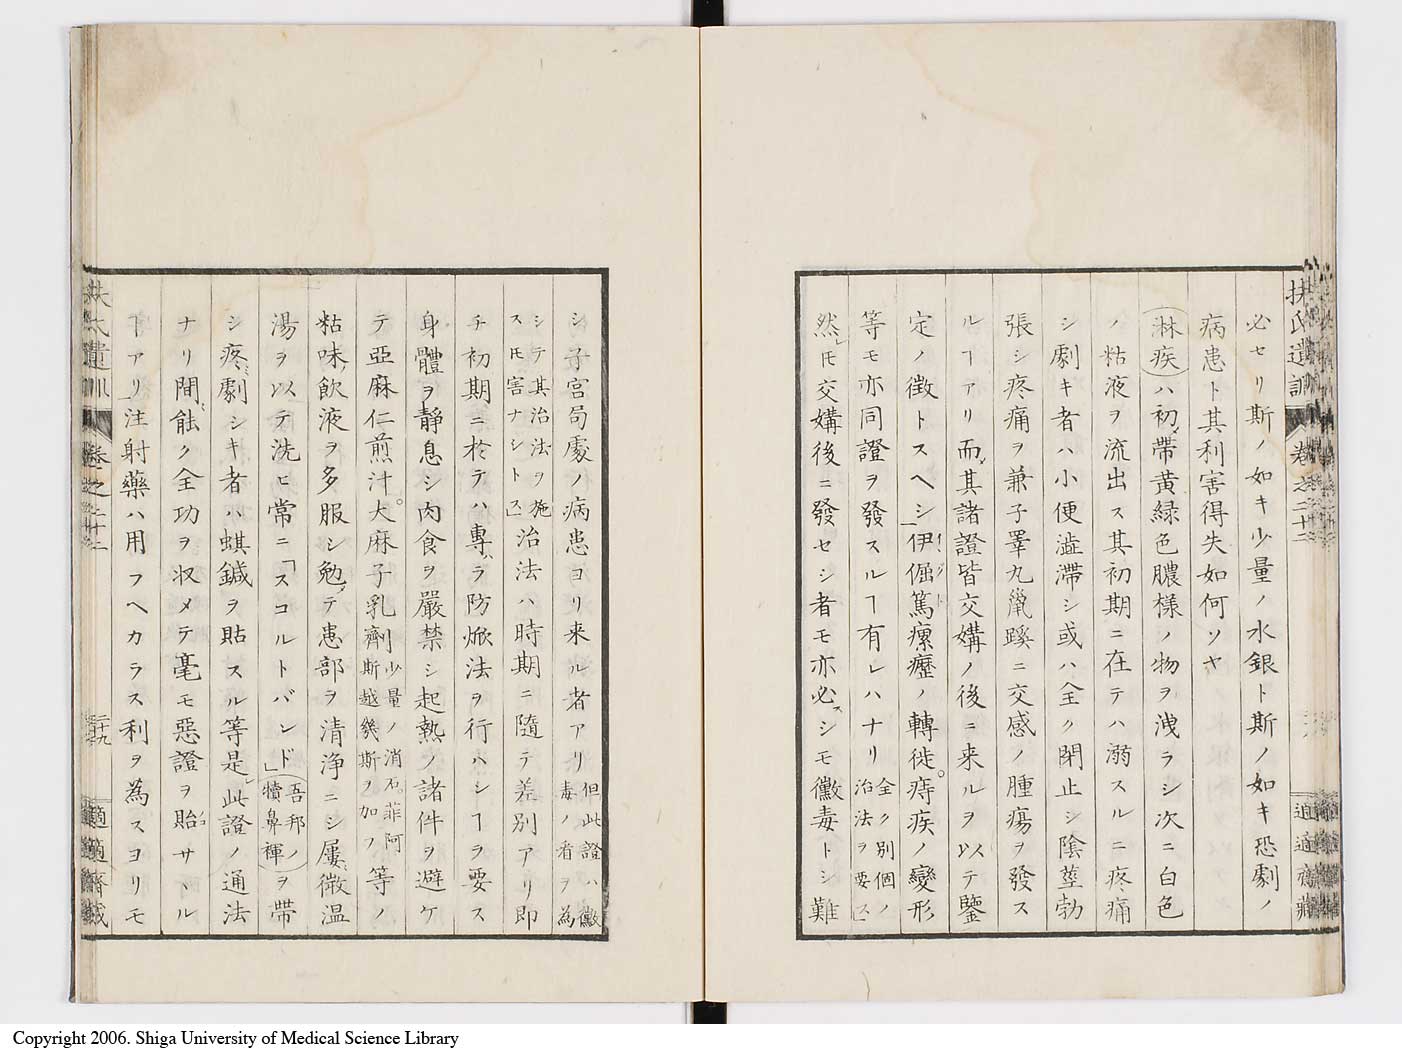 扶氏遺訓 卷之二十二 適適齋藏
必セリ斯ノ如キ少量ノ水銀ト斯ノ如キ恐劇ノ
病患ト其利害得失如何ソヤ
淋疾ハ初メ帶黃緑色膿様ノ物ヲ洩ラシ次ニ白色
ノ粘液ヲ流出ス其初期ニ在テハ溺スルニ疼痛
シ劇キ者ハ小便澁滯シ或ハ全ク閉止シ陰莖勃
張シ疼痛ヲ兼子睪丸鼠蹊ニ交感ノ腫瘍ヲ發ス
ルヿアリ而メ其諸證皆交媾ノ後ニ来ルヲ以テ鑒
定ノ徴トスヘシ」伊倔篤瘰癧ノ轉徙。痔疾ノ變形
等モ亦同證ヲ發スルヿ有レハナリ全ク別個ノ治法ヲ要ス」
然レ𪜈交媾後ニ發セシ者モ亦必スシモ黴毒トシ難
シ子宮局處ノ病患ヨリ来ル者アリ但此證ハ黴毒ノ者ヲ為
シテ其治法ヲ施ス𪜈害ナシトス」治法ハ時期ニ隨テ差別アリ即
チ初期ニ於テハ專ラ防焮法ヲ行ハシヿヲ要ス
身體ヲ靜息シ肉食ヲ嚴禁シ起熱ノ諸件ヲ避ケ
テ亞麻仁煎汁。大麻子乳劑少量ノ消石。菲阿斯越幾斯ヲ加フ等ノ
粘味飲液ヲ多服シ勉メテ患部ヲ清淨ニシ屢〻微温
湯ヲ以テ洗ヒ常ニ「スコルトバンド」吾邦ノ犢鼻褌ヲ帶
シ疼〻劇シキ者ハ蜞鍼ヲ貼スル等是レ此證ノ通法
ナリ間〻能ク全功ヲ収メテ毫モ惡證ヲ貽サヽル
ヿアリ」注射藥ハ用フヘカラス利ヲ為スヨリモ
扶氏遺訓 卷之二十二 二十九 適適齋藏
Copyright 2006. Shiga University of Medical Science Library